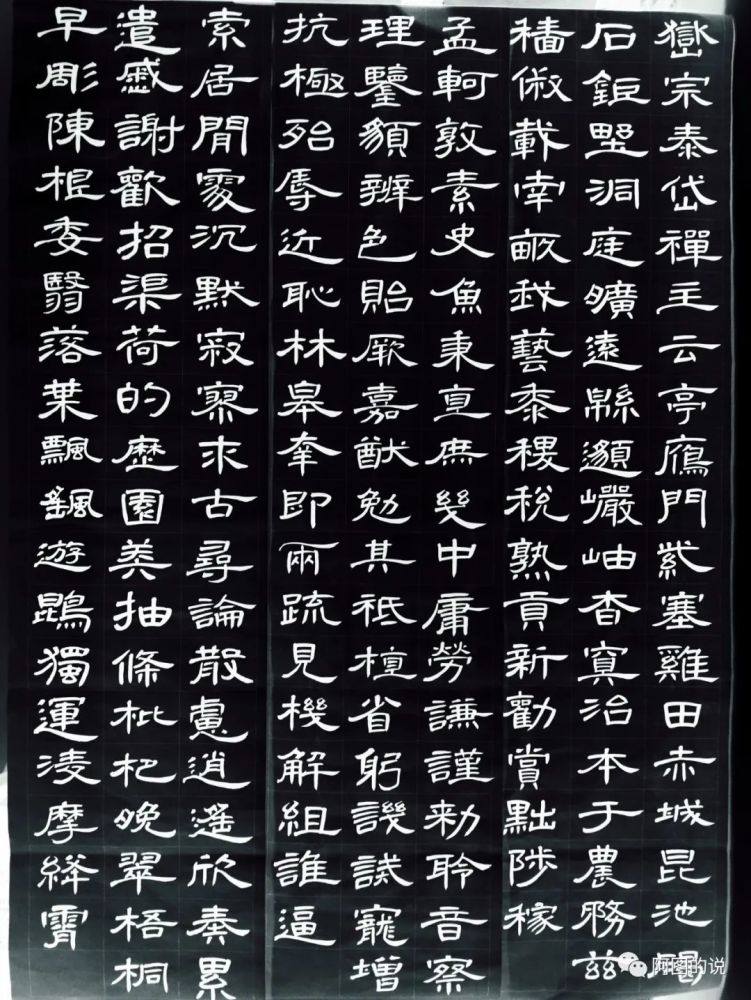 嶽宗泰岱禪主云亭鴈門紫塞雞田赤城昆池碣
石鉅野洞庭曠遠緜邈巖岫杳冥治本于農務茲
穡俶載南畝我藝黍稷稅熟貢新勸賞黜陟稼
孟軻敦素史魚秉直庶幾中庸勞謙謹勑聆音察
理鑒貌辨色貽厥嘉猷勉其祗植省躬譏誡寵增
抗極殆辱近恥林皋幸即兩疏見機解組誰逼
索居閒處沉默寂寥求古尋論散慮逍遙欣奏累
遣慼謝歡招渠荷的歷園莽抽條枇杷晚翠梧桐
早彫陳根委翳落葉飄颻遊鵾獨運凌摩絳霄
阿图的说